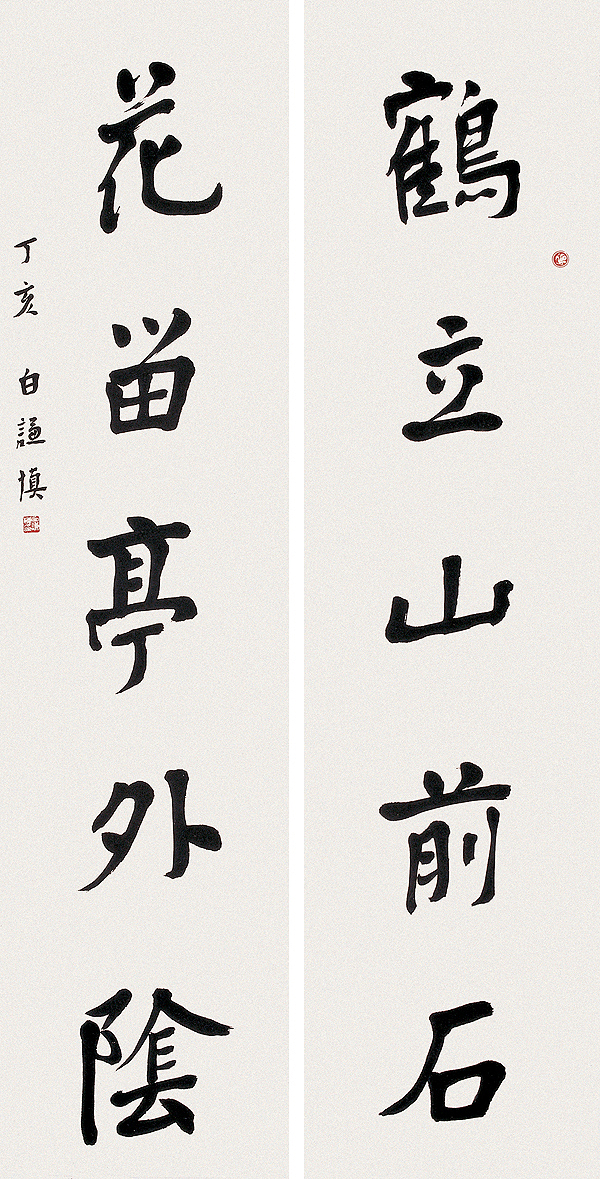 鶴立山前石
花留亭外陰
丁亥 白謙慎